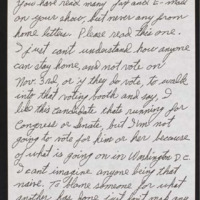 You have read many fax and e-mail
on your show, but never any from
home letters. Please read this one.
I just can't understand how anyone
can stay home, and not vote on
Nov. 3rd, or if they do vote, to walk
into that voting booth and say I
like this candidate that's running for
Congress or Senate, but I'm not
going to vote for him or her because
of what is going on in Washington D.C.
I cant imagine anyone being that
naive. To blame someone for what
another has done isn't